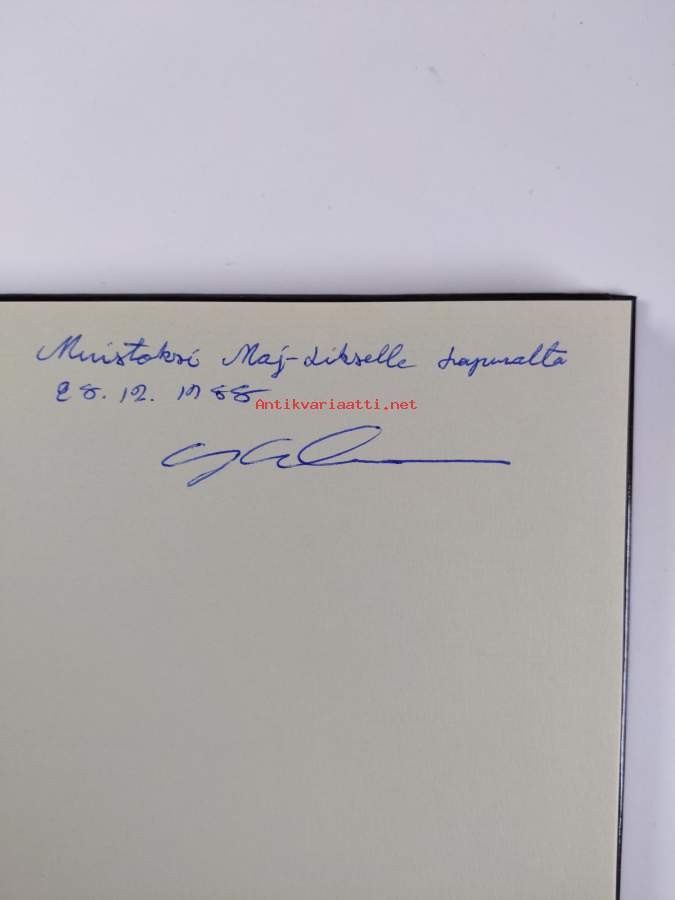 Muistoksi Maj-Likselle
28.12.1988
Antikvariaatti.net